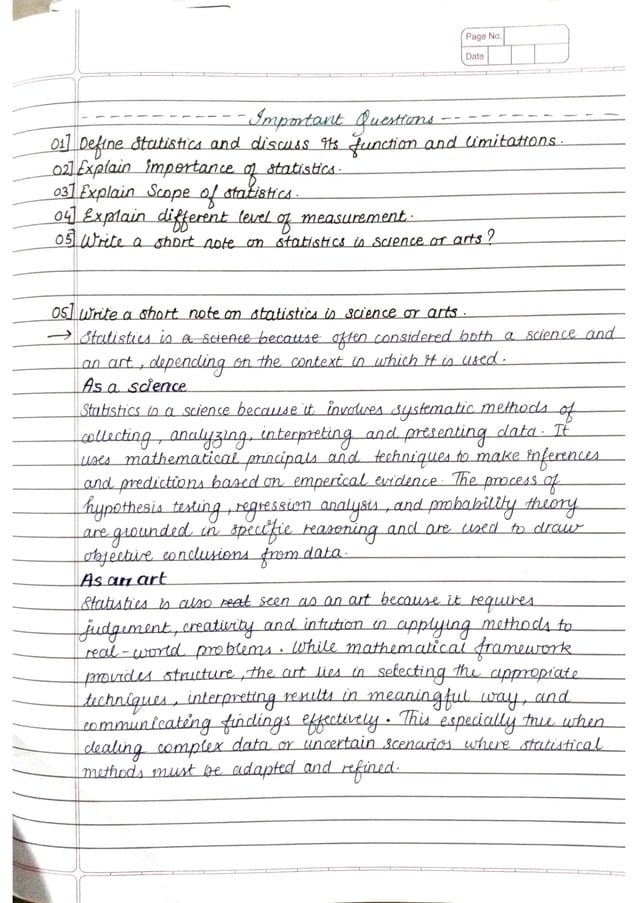 Page No.
Date
Important Questions
01] Define Statistics and discuss its function and limitations.
02] Explain importance of statistics.
03] Explain Scope of statistics.
04] Explain different level of measurement.
05] Write a short note on statistics is science or arts?
05] Write a short note on statistics is science or arts.
→ Statistics is a science because often considered both a science and
an art, depending on the context in which it is used.
As a science
Statistics is a science because it involves systematic methods of
collecting, analyzing, interpreting and presenting data. It
uses mathematical principals and techniques to make inferences
and predictions based on emperical evidence. The process of
hypothesis testing, regression analysis, and probability theory
are grounded in specific reasoning and are used to draw
objective conclusions from data.
As an art
Statistics is also reat seen as an art because it requires
judgement, creativity and intution in applying methods to
real-world problems. While mathematical framework
provides structure, the art lies in selecting the appropiate
techniques, interpreting results in meaningful way, and
communicating findings effectively. This especially true when
dealing complex data or uncertain scenarios where statistical
methods must be adapted and refined.